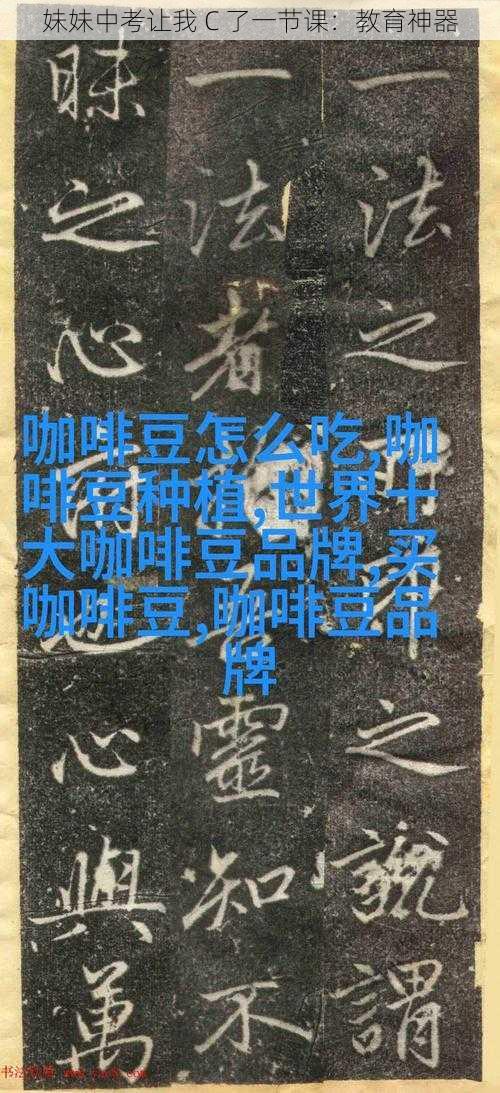 妹妹中考让我 C 了一节课：教育神器
咖啡豆怎么吃,咖
啡豆种植,世界十
大咖啡豆品牌,买
咖啡豆,咖啡豆品
牌
一法之之說謂
一法者靈知不
昧之心心與萬
书法